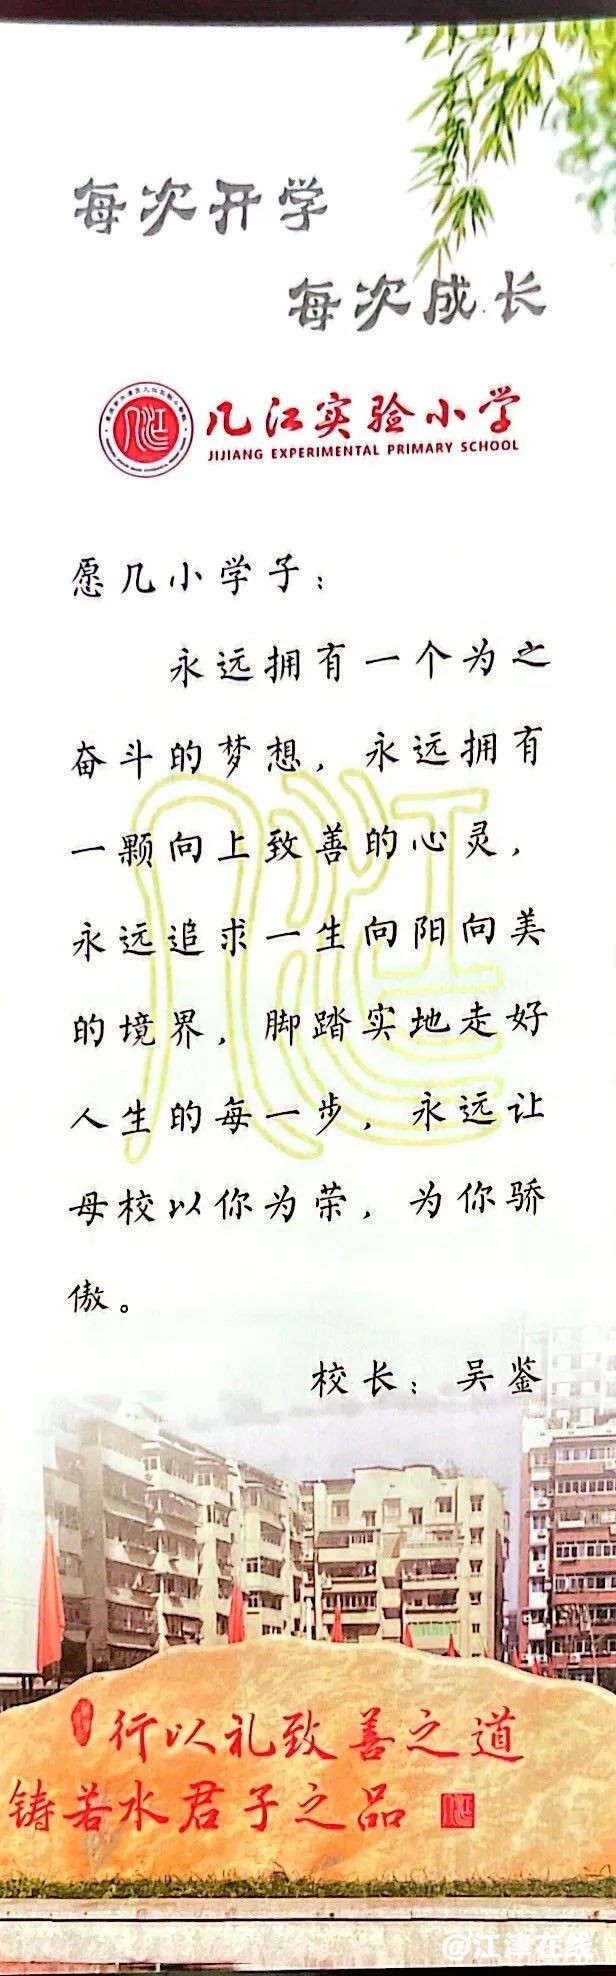 每次开学
每次成长
几江实验小学
JIJIANG EXPERIMENTAL PRIMARY SCHOOL
愿几小学子：
永远拥有一个为之
奋斗的梦想，永远拥有
一颗向上致善的心灵，
永远追求一生向阳向美
的境界，脚踏实地走好
人生的每一步，永远让
母校以你为荣，为你骄
傲。
校长：吴鉴
行以礼致善之道
铸若水君子之品
@江津在线